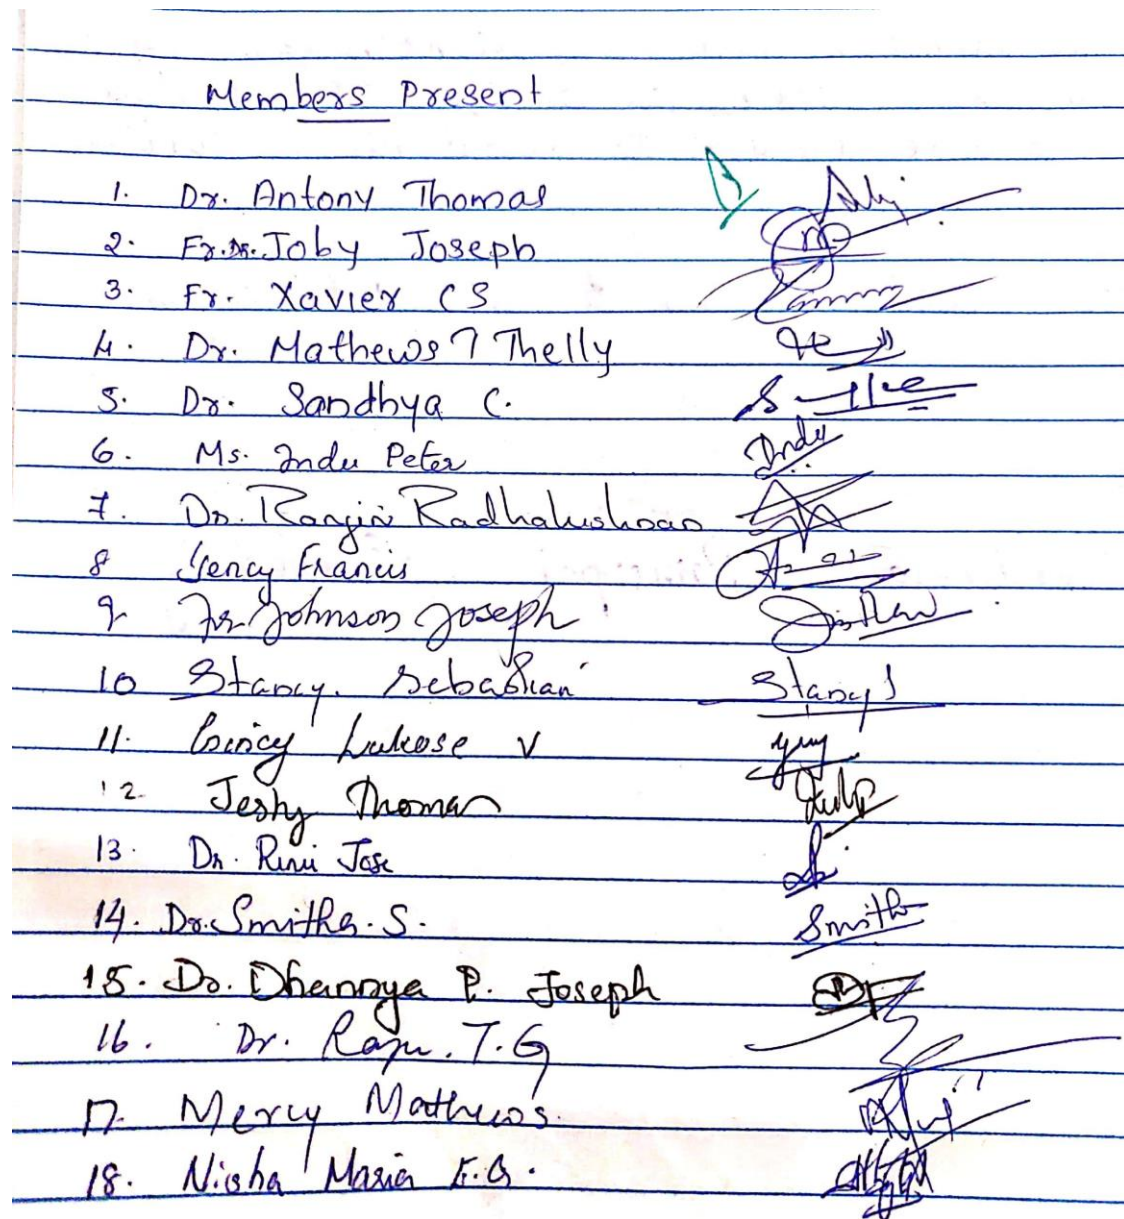 Members Present
1. Dr. Antony Thomas
2. Fr. Dr. Joby Joseph
3. Fr. Xavier CS
4. Dr. Mathews T Thelly
5. Dr. Sandhya C. S
6. Ms. Indu Peter Indu
7. Dr. Ranjin Radhakrishnan
8 Jency Francis
9 Fr. Johnson Joseph
10 Stancy. Sebastian Stancy S
11. Lukose V
12. Jeshy Thomas
13. Dr. Rini Jose
14. Dr. Smitha. S. Smitha
15. Dr. Dhannya P. Joseph
16. Dr. Raju. T. G
17. Mercy Mathews
18. Nisha Maria